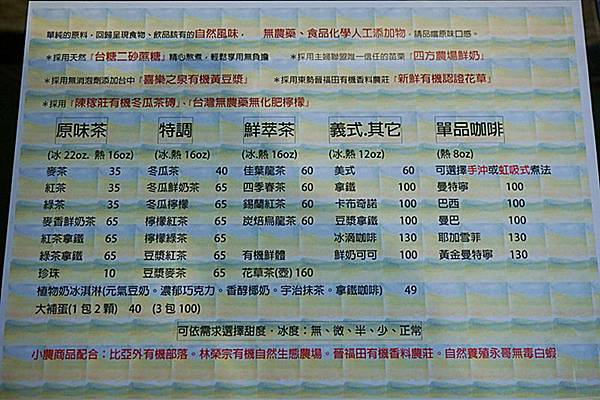 單純的原料，回歸呈現食物、飲品該有的自然風味， 無農藥、食品化學人工添加物，請品嚐原味口感。
＊採用天然「台糖二砂蔗糖」精心熬煮，輕鬆享用無負擔 ＊採用主婦聯盟唯一信任的苗栗「四方農場鮮奶」
＊採用無消泡劑添加台中「喜樂之泉有機黃豆漿」 ＊採用東勢晉福田有機香料農莊「新鮮有機認證花草」
＊採用「陳稼莊有機冬瓜茶磚」、「台灣無農藥無化肥檸檬」
原味茶 特調 鮮萃茶 義式.其它 單品咖啡
(冰22oz. 熱16oz) (冰.熱16oz) (冰.熱16oz) (冰.熱12oz) (熱8oz)
麥茶 35 冬瓜茶 40 佳葉龍茶 60 美式 60 可選擇手沖或虹吸式煮法
紅茶 35 冬瓜鮮奶茶 65 四季春茶 60 拿鐵 100 曼特寧 100
綠茶 35 冬瓜檸檬 65 錫蘭紅茶 60 卡布奇諾 100 巴西 100
麥香鮮奶茶 65 檸檬紅茶 65 炭焙烏龍茶 60 豆漿拿鐵 100 曼巴 100
紅茶拿鐵 65 檸檬綠茶 65 冰滴咖啡 130 耶加雪菲 130
綠茶拿鐵 65 豆漿紅茶 65 有機鮮體 鮮奶可可 100 黃金曼特寧 130
珍珠 10 豆漿麥茶 65 花草茶(壺) 160
植物奶冰淇淋(元氣豆奶。濃郁巧克力。香醇椰奶。宇治抹茶。拿鐵咖啡) 49
大補蛋(1包2顆) 40 (3包100)
可依需求選擇甜度，冰度：無、微、半、少、正常
小農商品配合：比亞外有機部落。林榮宗有機自然生態農場。晉福田有機香料農莊。自然養殖永哥無毒白蝦